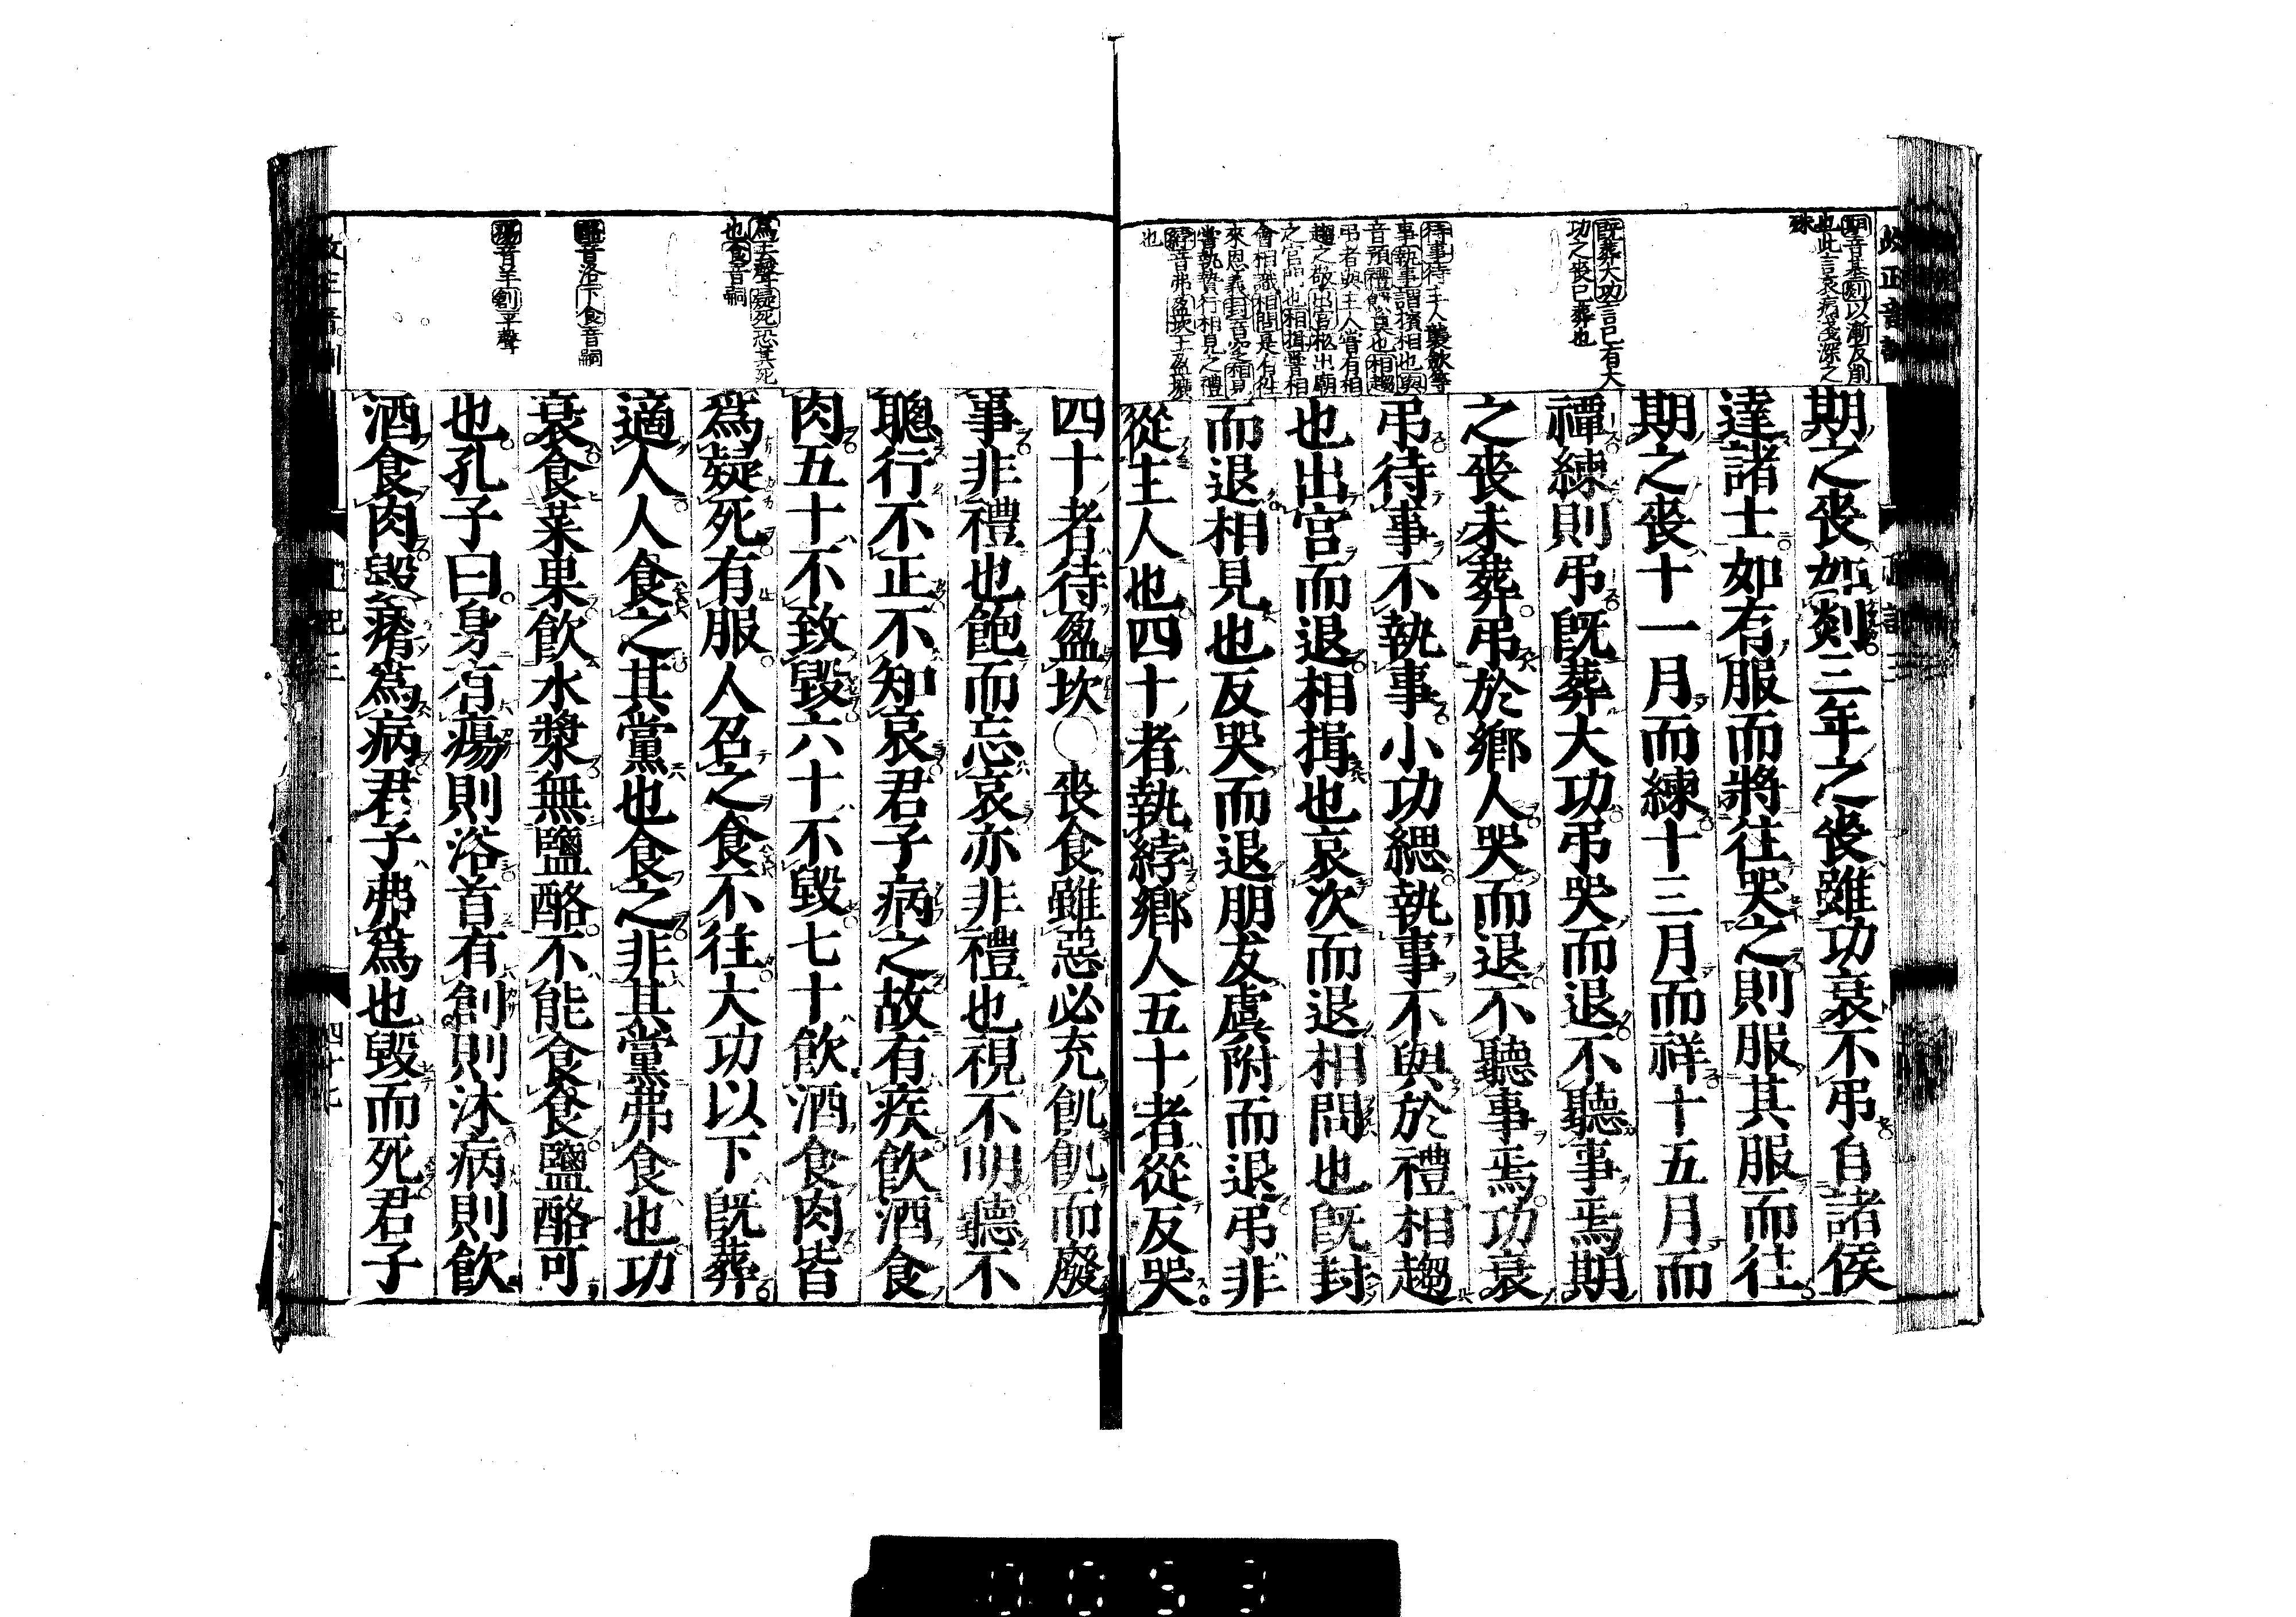 期之喪如剡三年之喪雖功衰不弔自諸侯
達諸士如有服而將往哭之則服其服而往
期之喪十一月而練十三月而祥十五月而
禫練則弔既葬大功弔哭而退不聽事焉期
之喪未葬弔於鄉人哭而退不聽事焉功衰
弔待事不執事小功緦執事不與於禮相趨
也出宮而退相揖也哀次而退相問也既封
而退相見也反哭而退朋友虞附而退弔非
從主人也四十者執綍鄉人五十者從反哭
四十者待盈坎〇喪食雖惡必充飢飢而廢
事非禮也飽而忘哀亦非禮也視不明聽不
聰行不正不知哀君子病之故有疾飲酒食
肉五十不致毀六十不毀七十飲酒食肉皆
為疑死有服人召之食不往大功以下既葬
適人人食之其黨也食之非其黨弗食也功
衰食菜果飲水漿無鹽酪不能食食鹽酪可
也孔子曰身有瘍則浴首有創則沐病則飲
酒食肉毀瘠為病君子弗為也毀而死君子
既葬大功言已有大
功之喪已葬也
為去聲疑死恐其死
也食音嗣
酪音洛下食音嗣
瘍音羊創平聲
四十七
0053